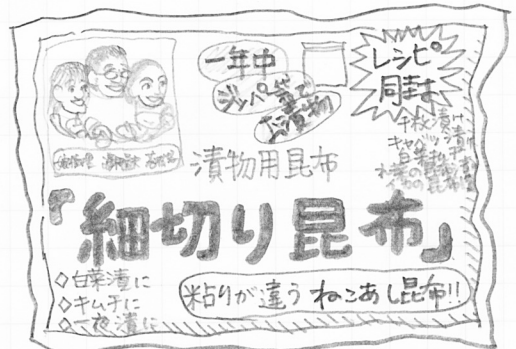 一年中
ジッパー袋で
お漬物
レシピ
同封
千枚漬け
キャベツ漬け
白菜
漬物用昆布
「細切り昆布」
◇白菜漬に
◇キムチに
◇一夜漬に
粘りが違う ねこあし昆布!!